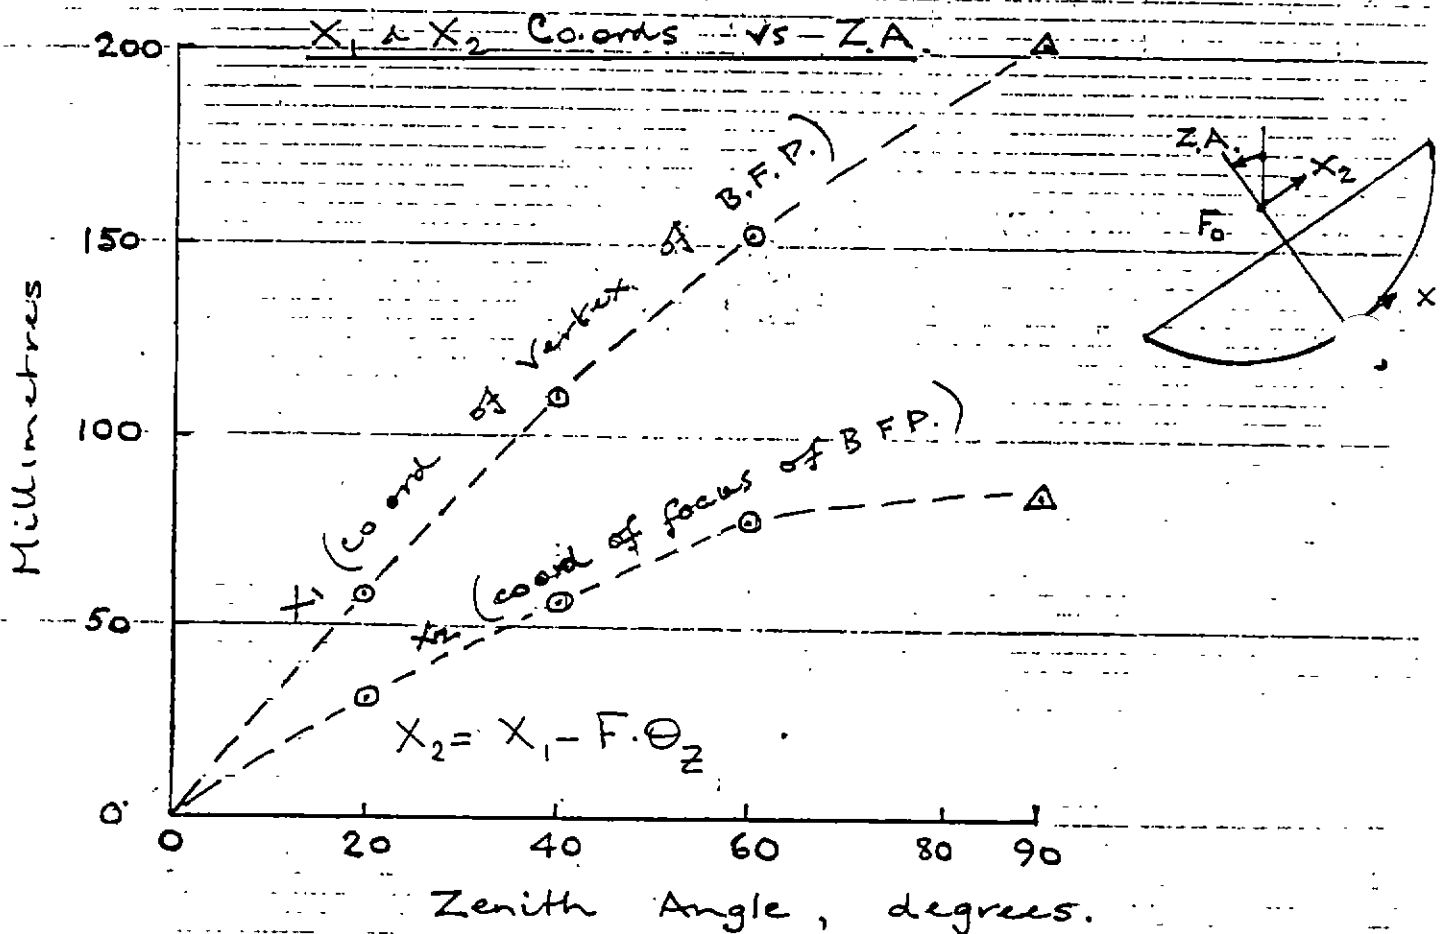 X₁ & X₂ Co.ords vs - Z.A.
200
150
100
50
0
Millimetres
X₁ (co ord of Vertex of B.F.P.)
X₂ (coord of focus of B F P.)
X₂ = X₁ - F.θ_Z
Z.A.
X₂
F₀
X
0 20 40 60 80 90
Zenith Angle, degrees.